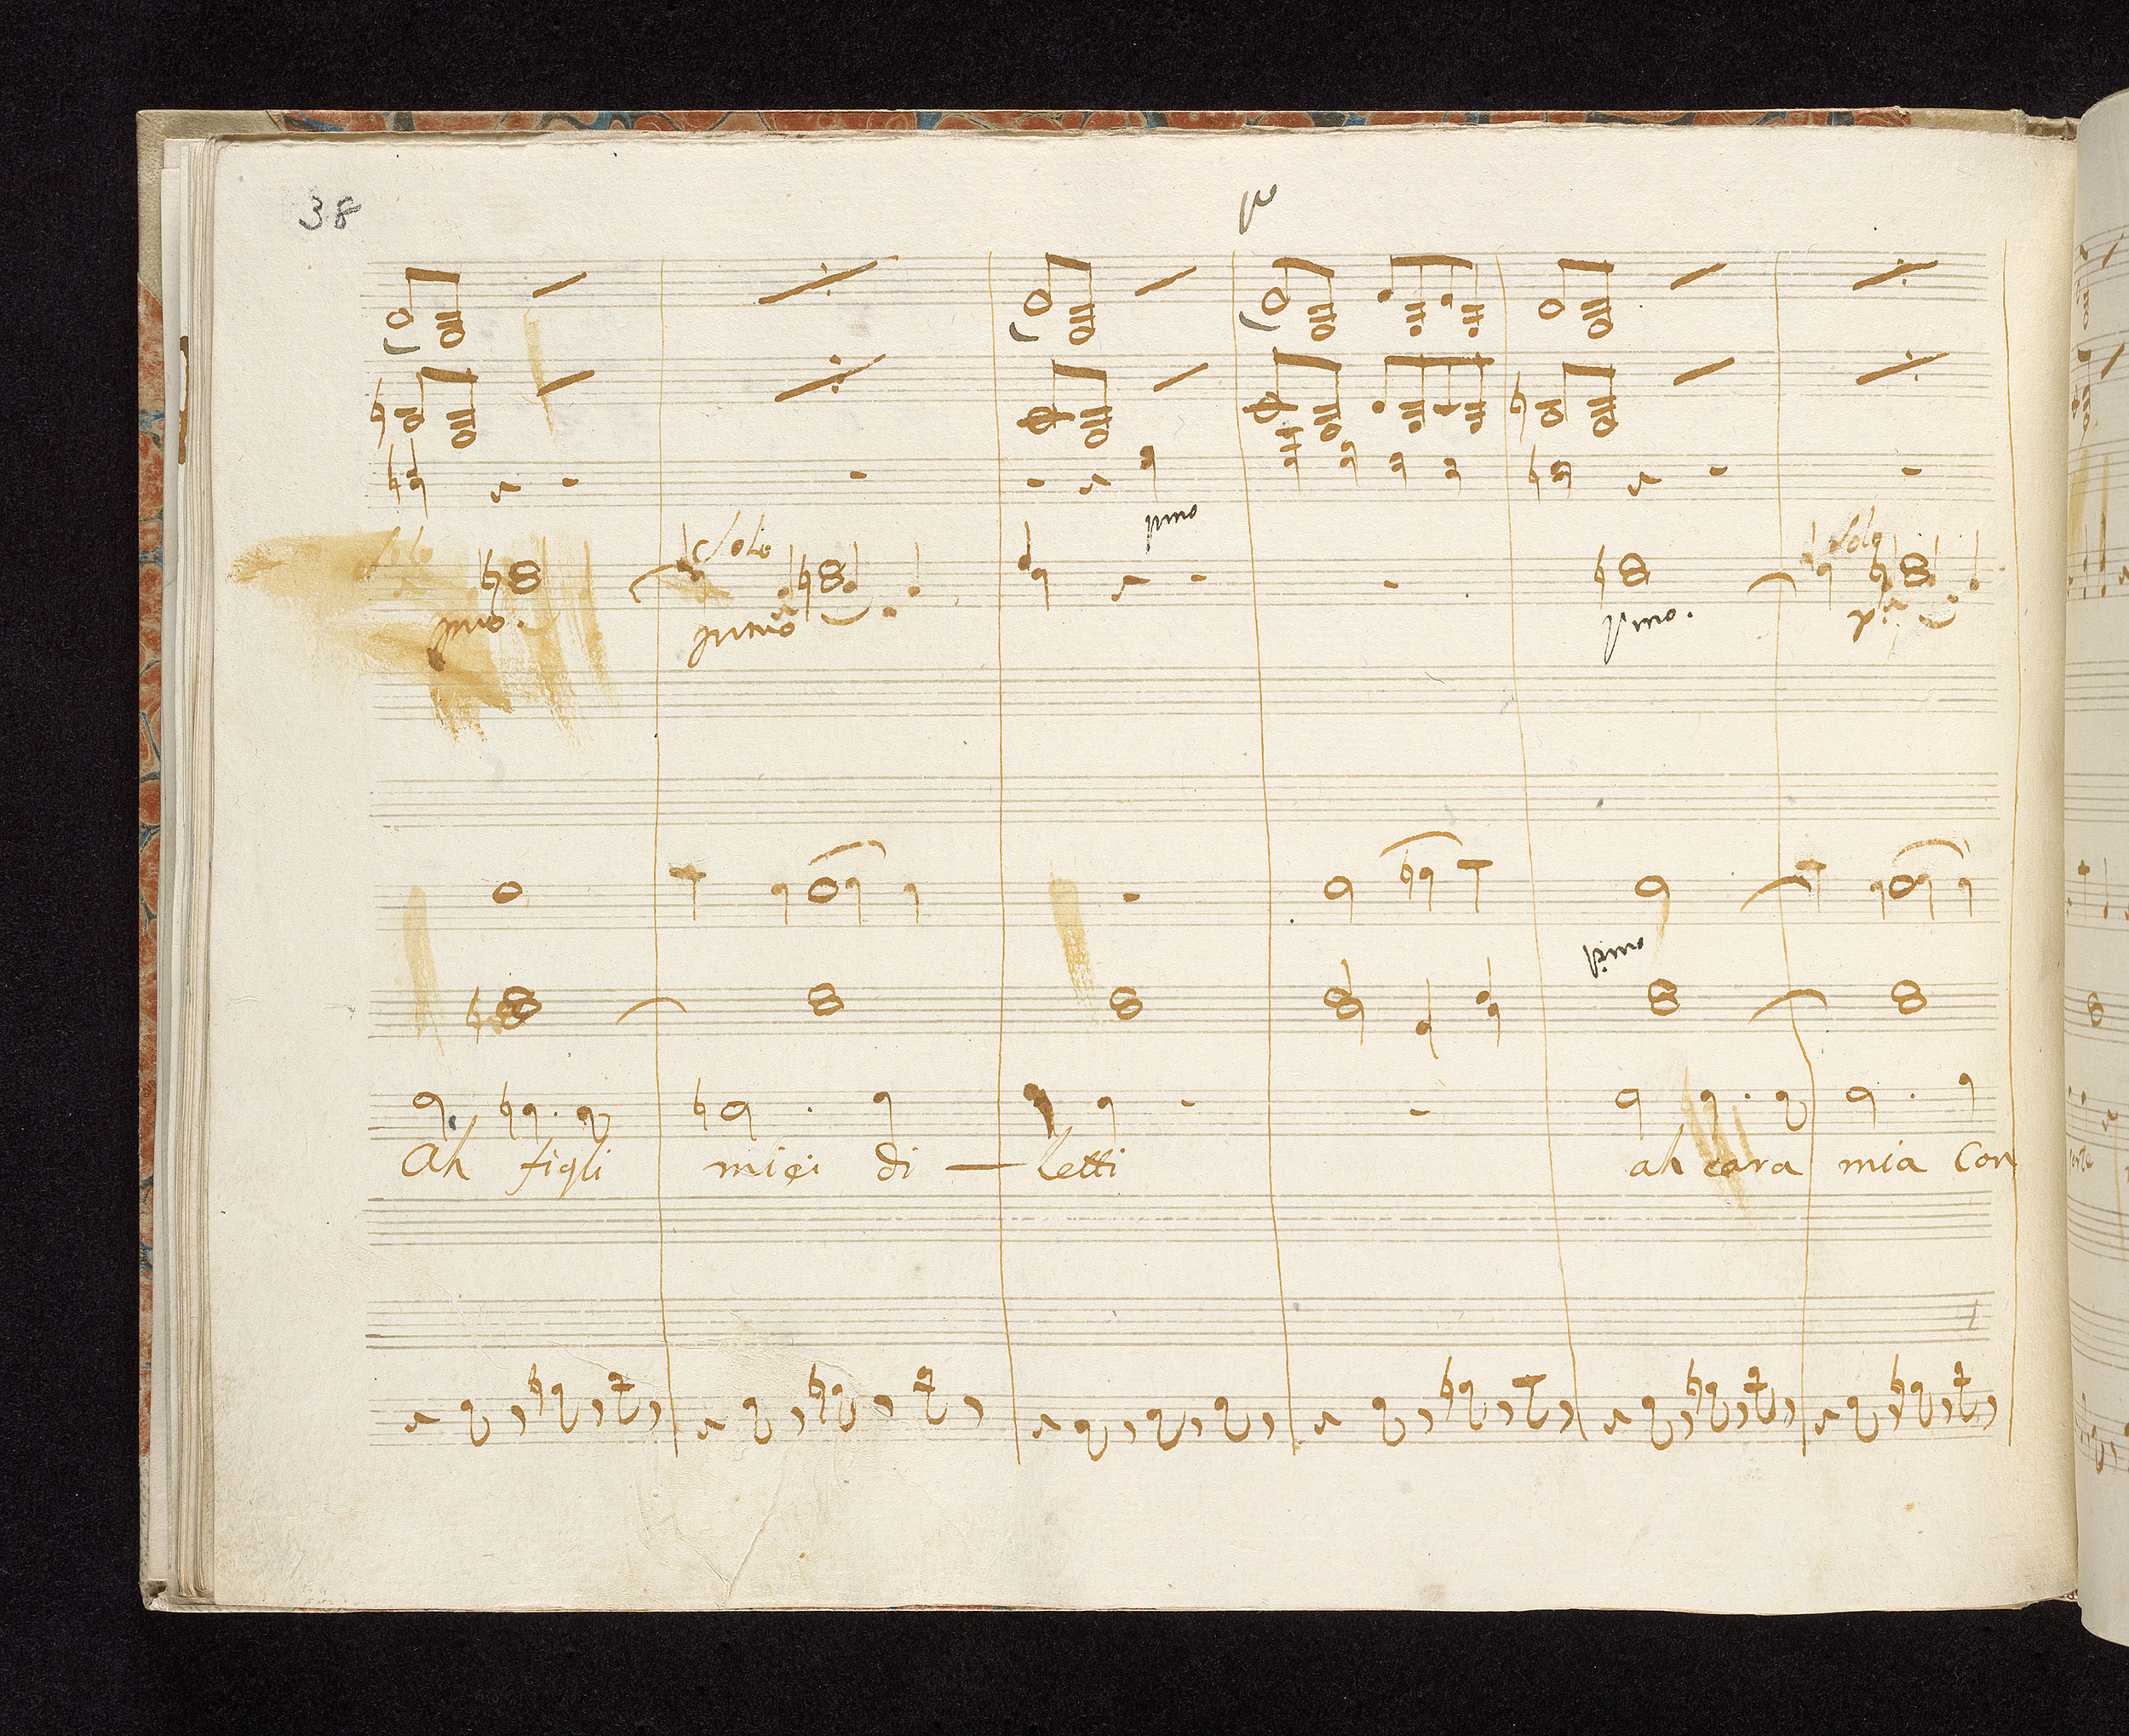 38
p
pmo
Solo Solo Solo
pmo. pmo pmo. p
pmo
Ah figli miei di — letti ah cara mia Con